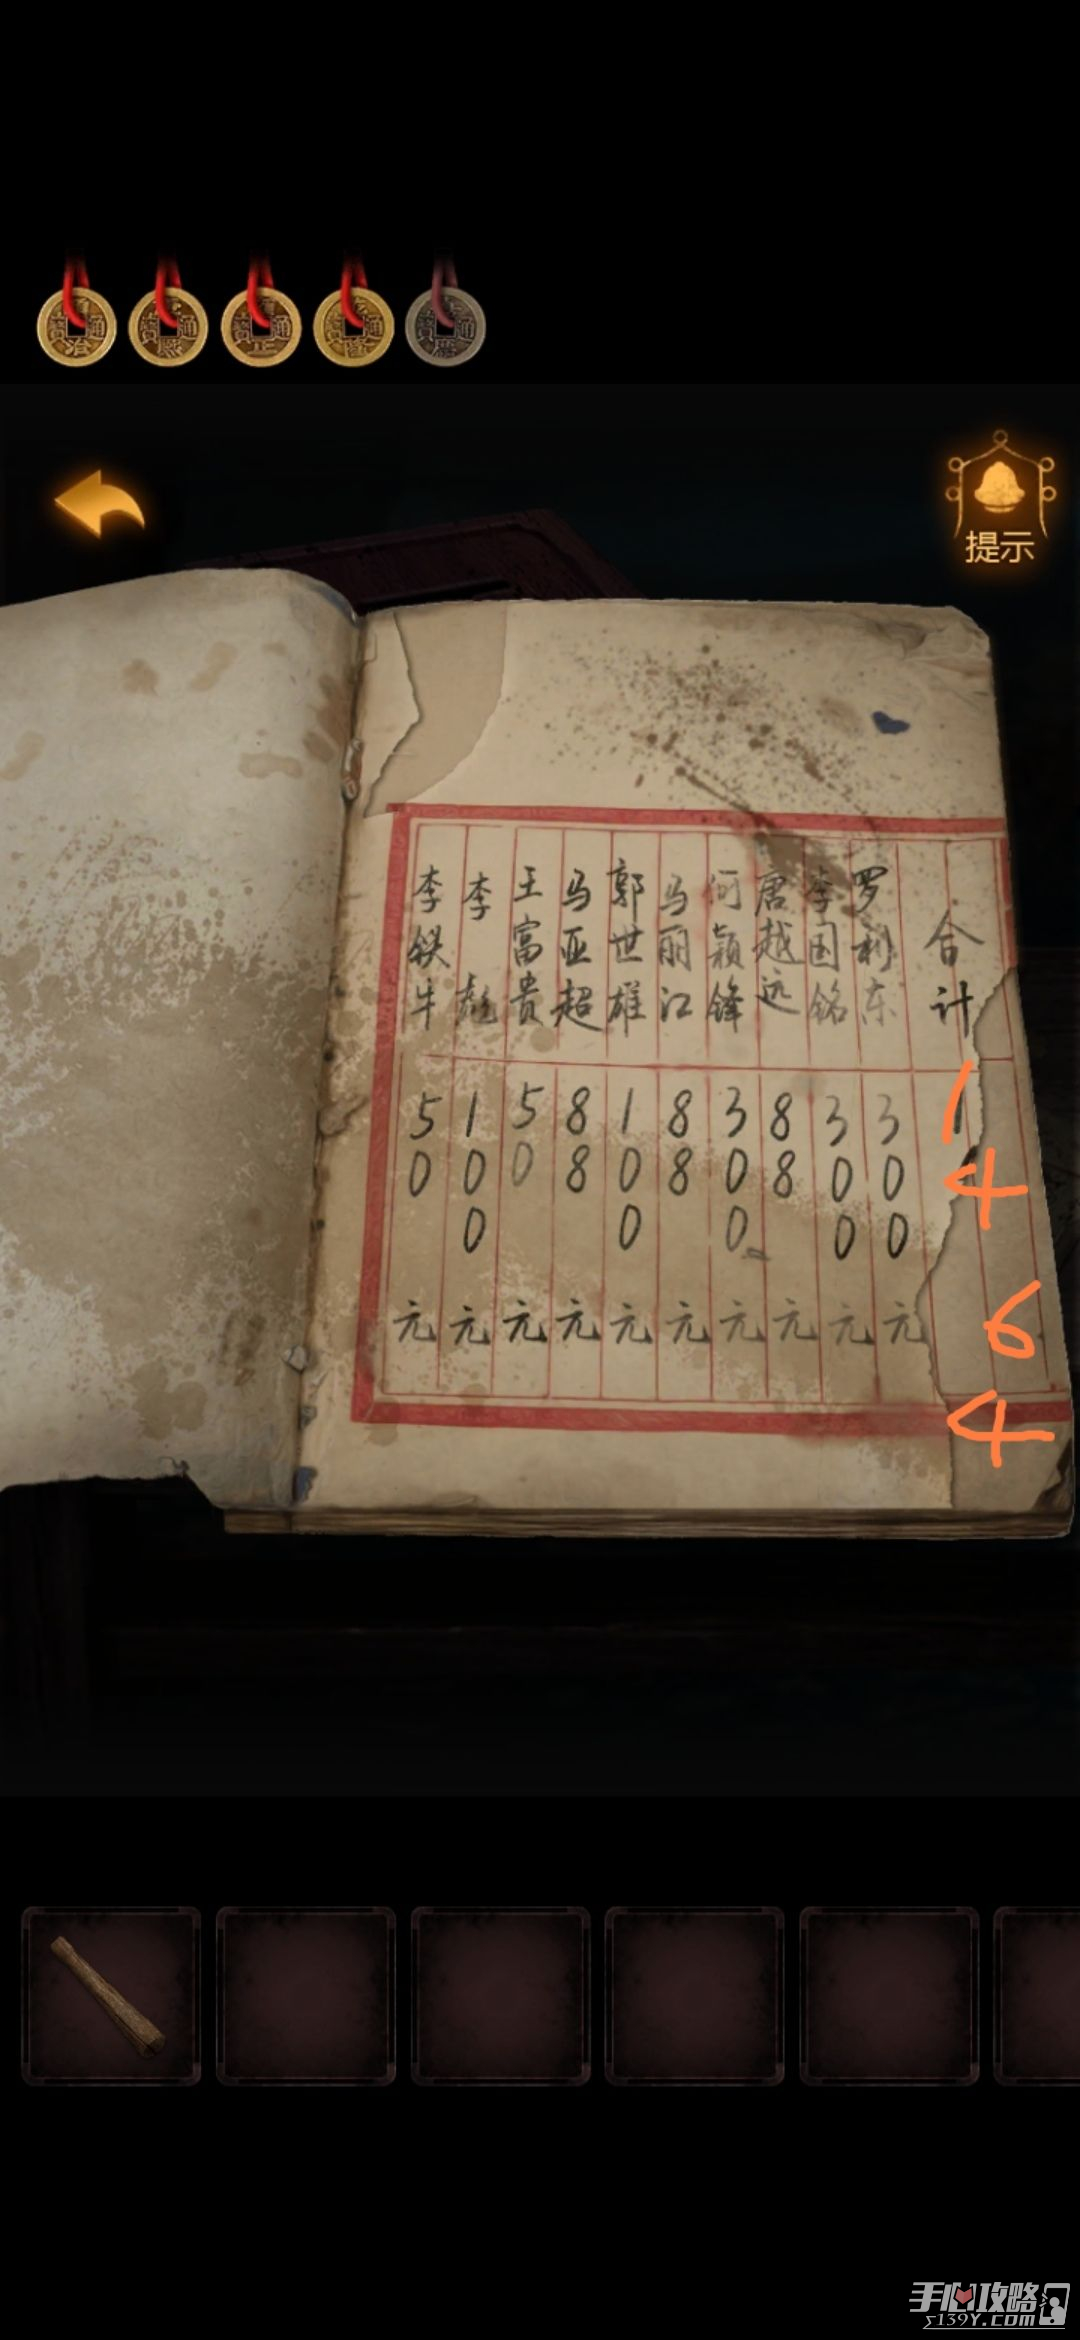 提示
李铁牛 50元
李彪 100元
王富贵 50元
马亚超 88元
郭世雄 100元
马丽江 88元
何颖锋 300元
唐越远 88元
李国铭 300元
罗利东 300元
合计 1464
手心攻略
5139Y.COM